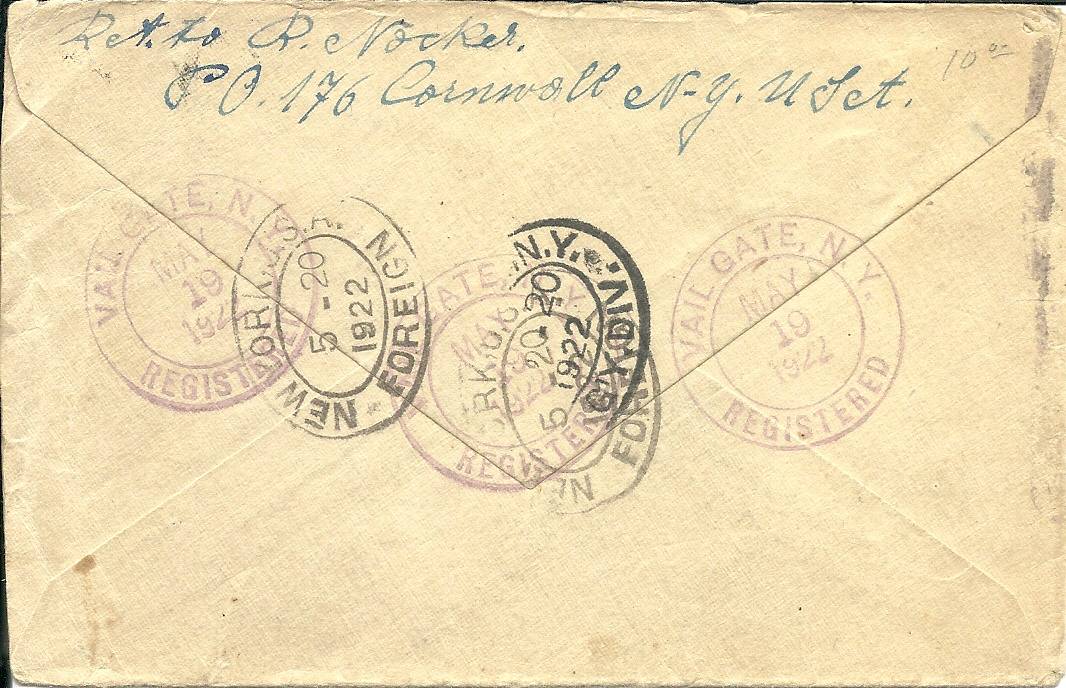 Ret. to R. Nocker.
P O. 176 Cornwall N-Y. U S A.
10 00
VAIL GATE, N. Y.
MAY
19
1922
REGISTERED
NEW YORK, N.Y.
5 - 20
1922
FOREIGN
GATE, N.Y.
MAY
19
1922
REGISTERED
N.Y.
5 - 20
1922
VAIL GATE, N. Y.
MAY
19
1922
REGISTERED